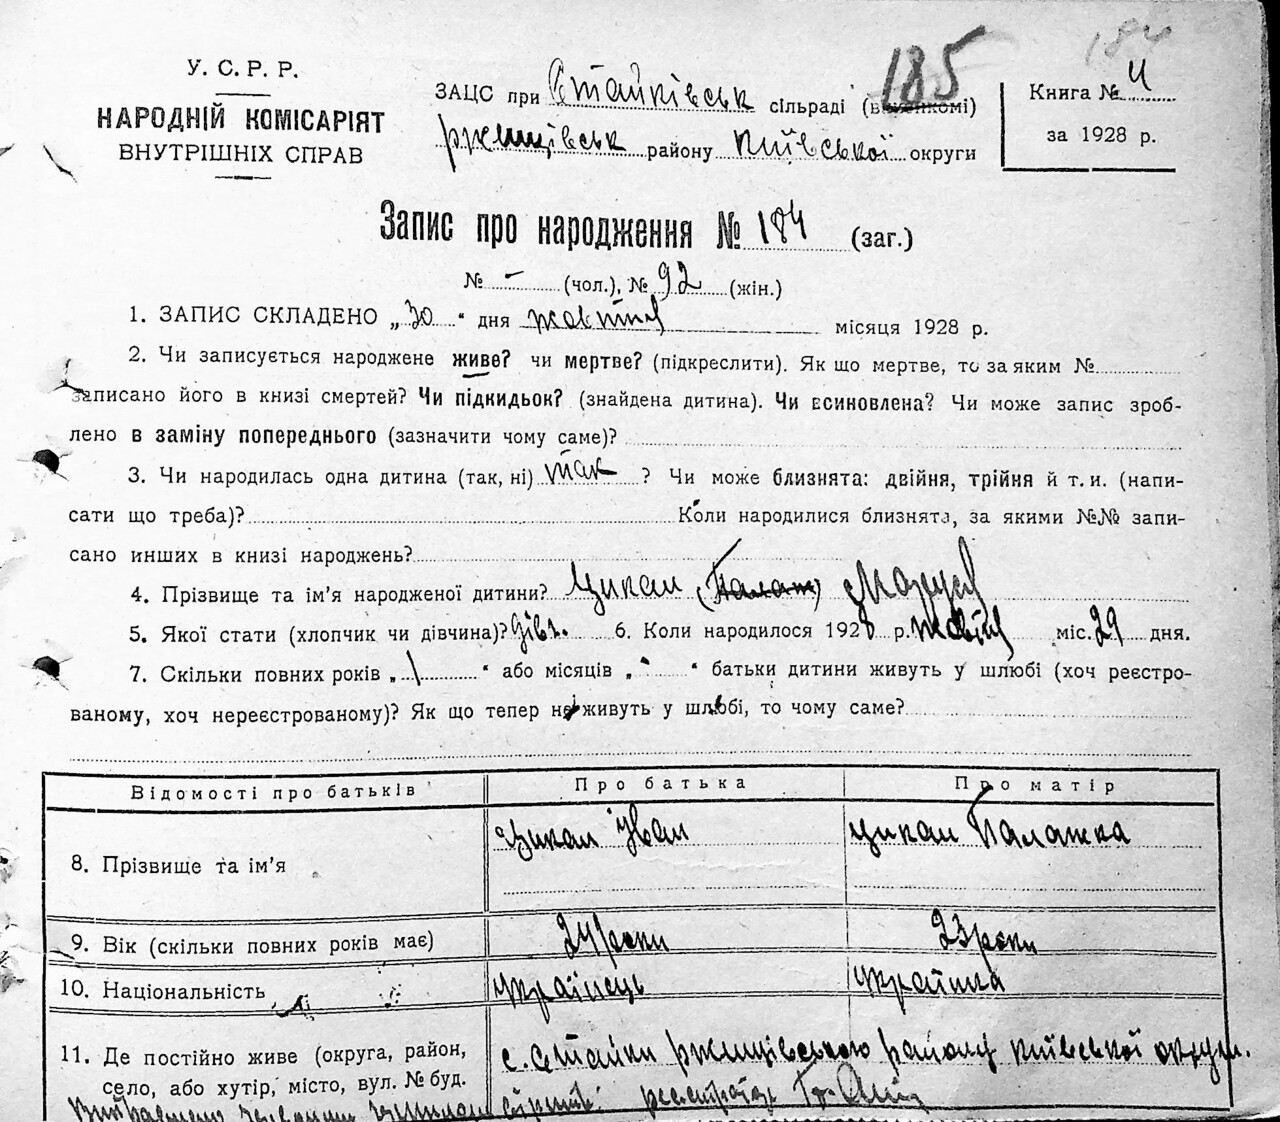 185
184
У. С. Р. Р.
НАРОДНІЙ КОМІСАРІЯТ
ВНУТРІШНІХ СПРАВ
ЗАЦС при Стайківськ сільраді (виконкомі)
Ржищівськ району Київської округи
Книга № 4
за 1928 р.
Запис про народження № 184 (заг.)
№ - (чол.), № 92 (жін.)
1. ЗАПИС СКЛАДЕНО „30“ дня жовтня місяця 1928 р.
2. Чи записується народжене живе? чи мертве? (підкреслити). Як що мертве, то за яким №
записано його в книзі смертей? Чи підкидьок? (знайдена дитина). Чи всиновлена? Чи може запис зроб-
лено в заміну попереднього (зазначити чому саме)?
3. Чи народилась одна дитина (так, ні) так ? Чи може близнята: двійня, трійня й т. и. (напи-
сати що треба)? Коли народилися близнята, за якими №№ запи-
сано инших в книзі народжень?
4. Прізвище та ім'я народженої дитини? Цикал (Палаж) Маруся
5. Якої стати (хлопчик чи дівчина)? Дівч. 6. Коли народилося 1928 р. жовтня міс. 29 дня.
7. Скільки повних років „ 1 “ або місяців „ - “ батьки дитини живуть у шлюбі (хоч реєстро-
ваному, хоч нереєстрованому)? Як що тепер не живуть у шлюбі, то чому саме?
Відомості про батьків Про батька Про матір
8. Прізвище та ім'я Цикал Іван Цикал Палажка
9. Вік (скільки повних років має) 24 роки 23 роки
10. Національність українець українка
11. Де постійно живе (округа, район, с. Стайки Ржищівського району Київської округи.
село, або хутір, місто, вул. № буд.